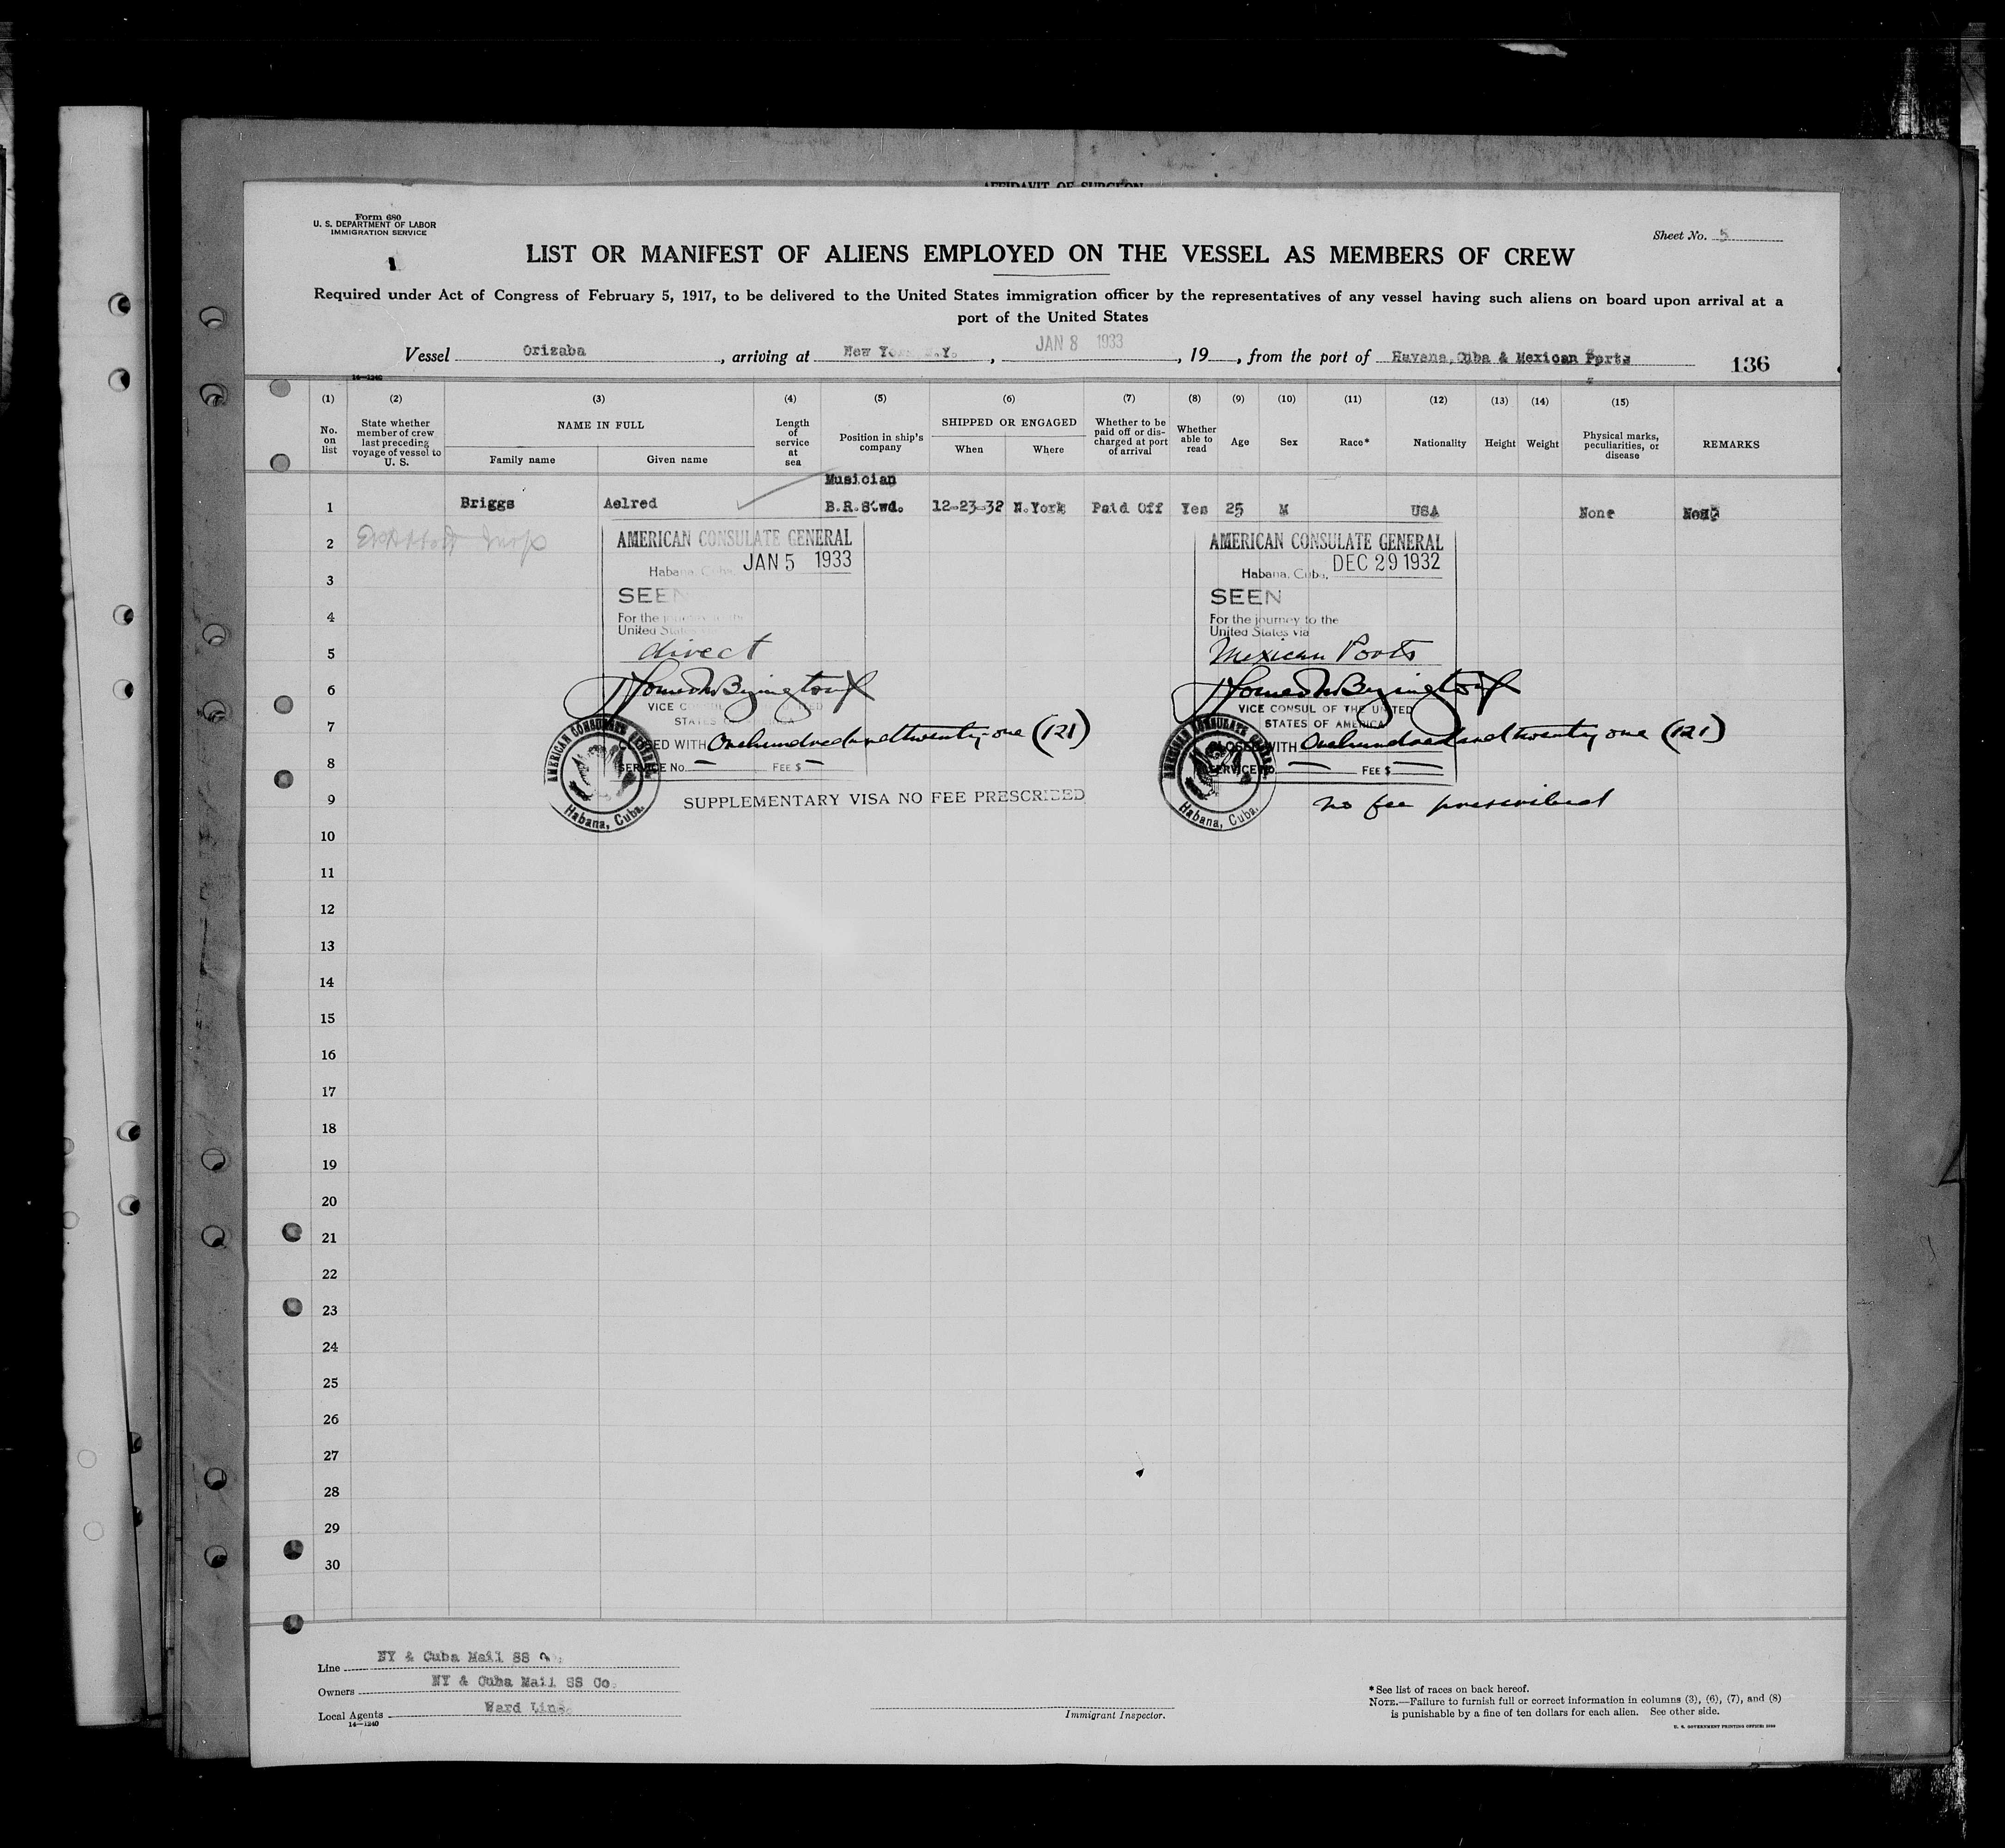 AFFIDAVIT OF SURGEON
Form 680
U. S. DEPARTMENT OF LABOR
IMMIGRATION SERVICE
Sheet No. 5
LIST OR MANIFEST OF ALIENS EMPLOYED ON THE VESSEL AS MEMBERS OF CREW
Required under Act of Congress of February 5, 1917, to be delivered to the United States immigration officer by the representatives of any vessel having such aliens on board upon arrival at a
port of the United States
Vessel Orizaba, arriving at New Yo N.Y., JAN 8 1933, 19, from the port of Havana, Cuba & Mexican Ports 136
14-1240
(1) (2) (3) (4) (5) (6) (7) (8) (9) (10) (11) (12) (13) (14) (15)
No. on list
State whether member of crew last preceding voyage of vessel to U. S.
NAME IN FULL
Family name
Given name
Length of service at sea
Position in ship's company
SHIPPED OR ENGAGED
When
Where
Whether to be paid off or discharged at port of arrival
Whether able to read
Age
Sex
Race*
Nationality
Height
Weight
Physical marks, peculiarities, or disease
REMARKS
Musician
1 Briggs Aelred B.R.Stwd. 12-23-32 N.York Paid Off Yes 25 M USA None None
2
3
4
5
6
7
8
9
10
11
12
13
14
15
16
17
18
19
20
21
22
23
24
25
26
27
28
29
30
AMERICAN CONSULATE GENERAL
Habana, Cuba, JAN 5 1933
SEEN
For the journey to the
United States via
direct
VICE CONSUL OF THE UNITED
STATES OF AMERICA
CLOSED WITH One hundred and twenty-one (121)
SERVICE No. — FEE $ —
AMERICAN CONSULATE GENERAL
Habana, Cuba.
SUPPLEMENTARY VISA NO FEE PRESCRIBED
AMERICAN CONSULATE GENERAL
Habana, Cuba, DEC 29 1932
SEEN
For the journey to the
United States via
Mexican Ports
VICE CONSUL OF THE UNITED
STATES OF AMERICA
CLOSED WITH One hundred and twenty one (121)
SERVICE No. — FEE $ —
AMERICAN CONSULATE GENERAL
Habana, Cuba.
no fee prescribed
Line NY & Cuba Mail SS
Owners NY & Cuba Mail SS Co.
Local Agents Ward Line
14-1240
Immigrant Inspector.
* See list of races on back hereof.
NOTE.—Failure to furnish full or correct information in columns (3), (6), (7), and (8)
is punishable by a fine of ten dollars for each alien. See other side.